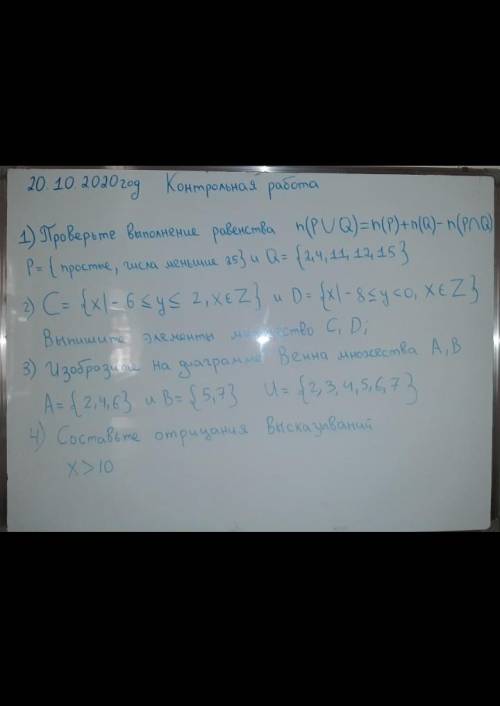 20.10.2020 год Контрольная работа
1) Проверьте выполнение равенства n(P∪Q)=n(P)+n(Q)-n(P∩Q)
P={простые, числа меньшие 25} и Q={2,4,11,12,15}
2) C={x|-6≤y≤2,x∈Z} и D={x|-8≤y<0, x∈Z}
Выпишите элементы множество C, D;
3) Изобразите на диаграмме Венна множества A, B
A={2,4,6} и B={5,7} U={2,3,4,5,6,7}
4) Составьте отрицания высказываний
x>10